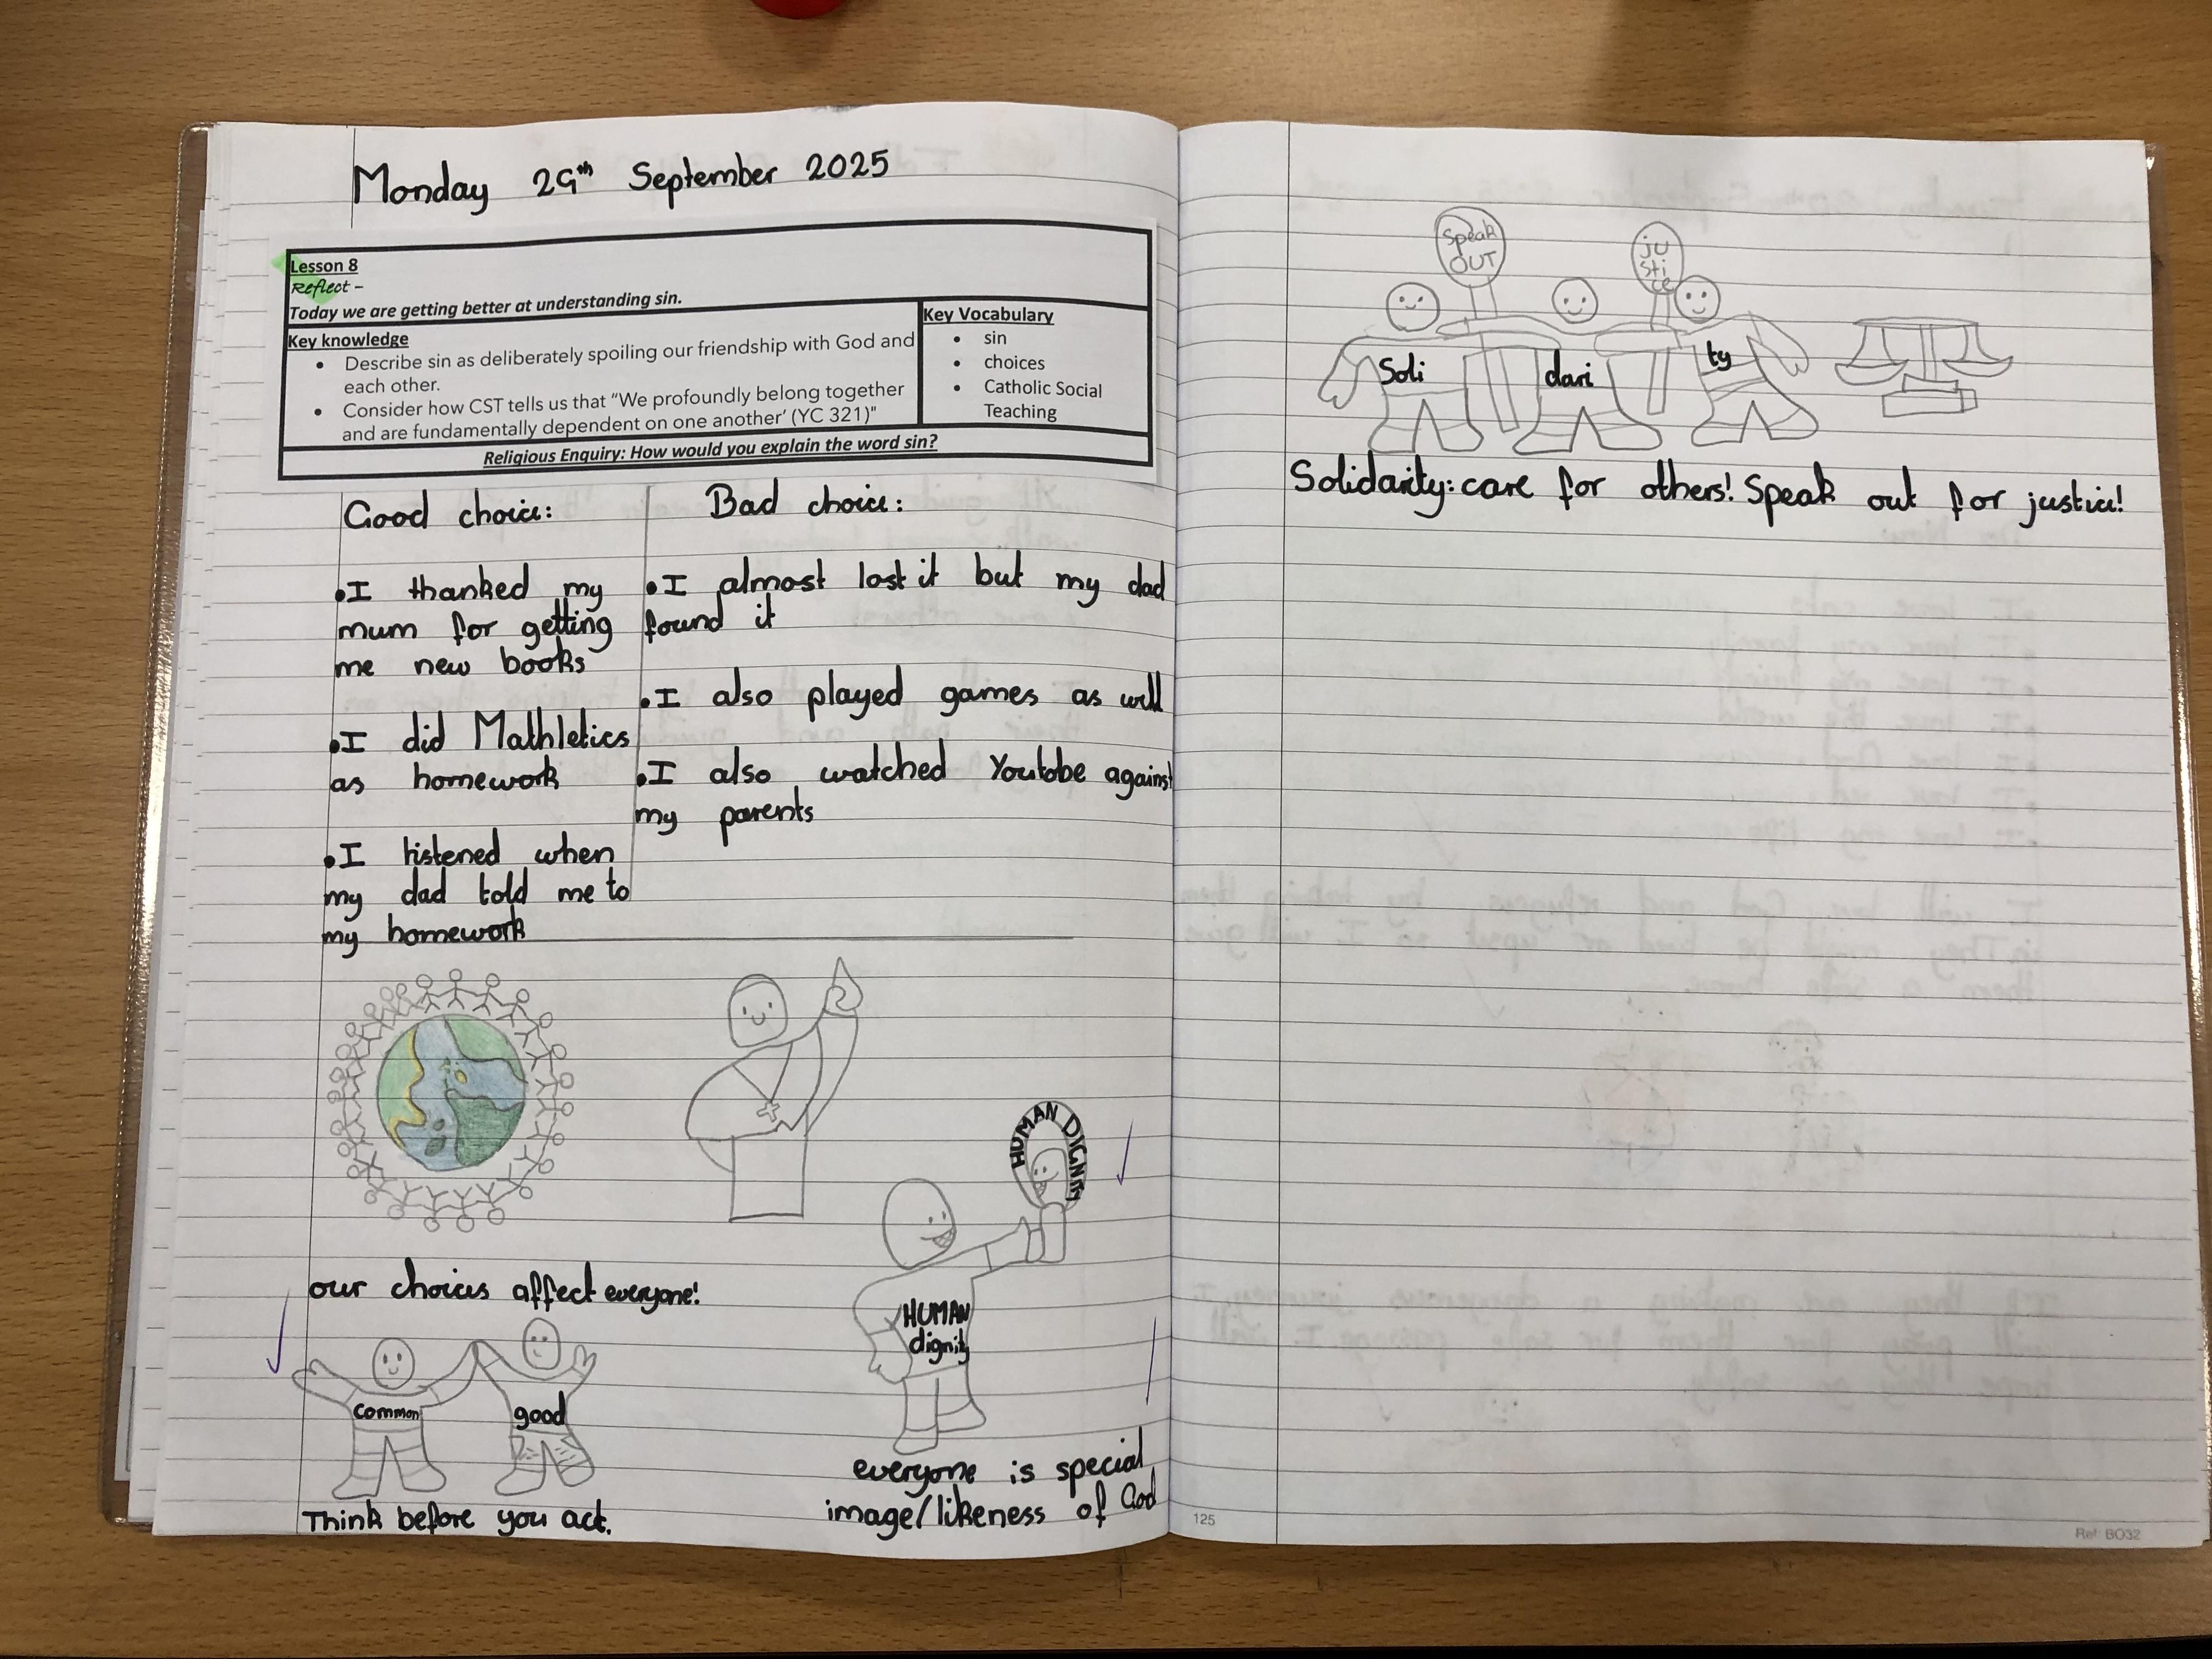 Monday 29th September 2025
Lesson 8
Reflect –
Today we are getting better at understanding sin.
Key knowledge
• Describe sin as deliberately spoiling our friendship with God and
each other.
• Consider how CST tells us that "We profoundly belong together
and are fundamentally dependent on one another' (YC 321)"
Key Vocabulary
• sin
• choices
• Catholic Social
Teaching
Religious Enquiry: How would you explain the word sin?
Good choice:
•I thanked my
mum for getting
me new books
•I did Mathletics
as homework
•I listened when
my dad told me to
my homework
Bad choice:
•I almost lost it but my dad
found it
•I also played games as well
•I also watched Youtobe against
my parents
HUMAN DIGNITY
HUMAN
dignity
our choices affect everyone!
common
good
Think before you act.
everyone is special
image/likeness of God
Speak
OUT
ju
sti
ce
Soli
dari
ty
Solidarity: care for others! Speak out for justice!
125
Ref: BO32